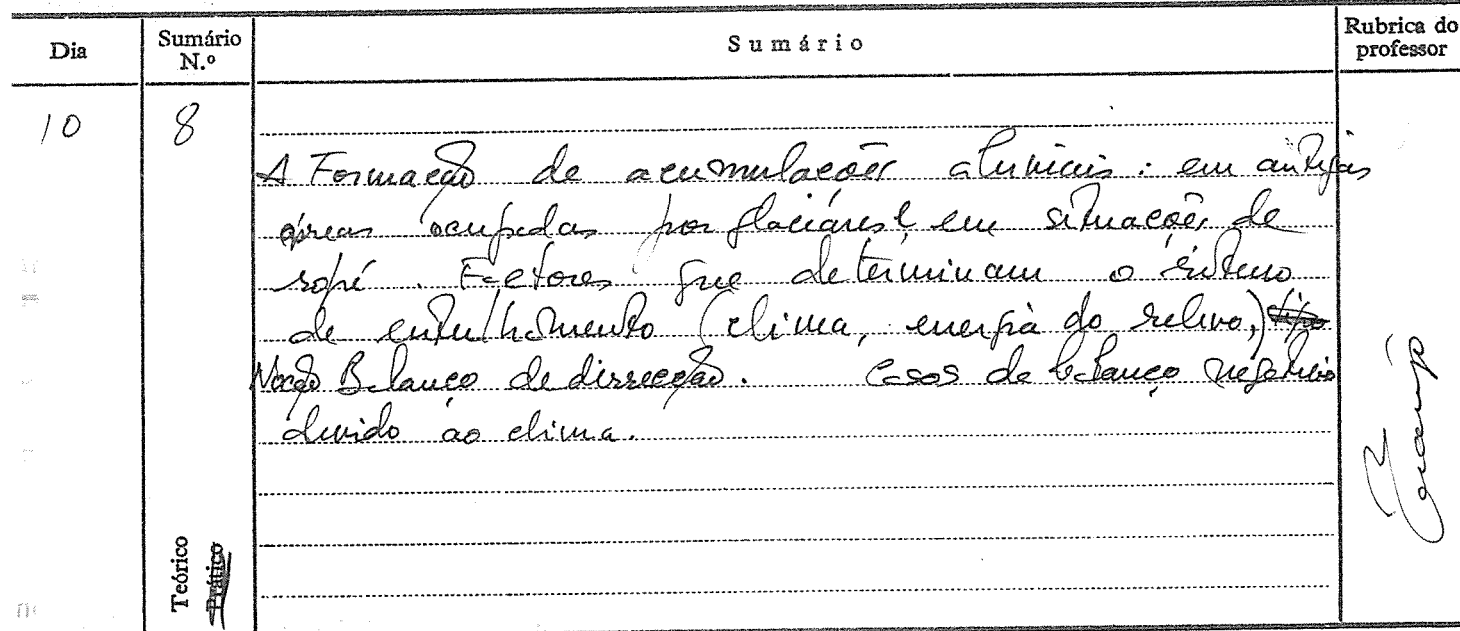 Dia
Sumário N.º
Sumário
Rubrica do professor
10
8
A Formação de acumulações aluviais: em antigas
áreas ocupadas por glaciares e em situações de
sopé. Factores que determinam o sistema
de entulhamento (clima, energia do relevo,) tipo
Noção Balanço de dissecção. Casos de balanço negativo
devido ao clima.
Teórico
Prático